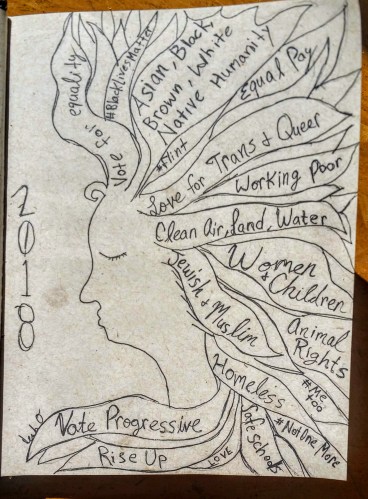 equality
Vote for
#BlackLivesMatter
Asian, Black,
Brown, White
Native Humanity
#Flint
Equal Pay
Love for Trans & Queer
Working Poor
Clean Air, Land, Water
Women
& Children
Jewish & Muslim
Animal
Rights
#Me
too
Homeless
#NotOneMore
Safe Schools
LOVE
Vote Progressive
Rise Up
2018